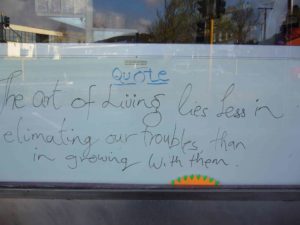 Quote
The art of Living lies Less in
elimating our troubles than
in growing with them.